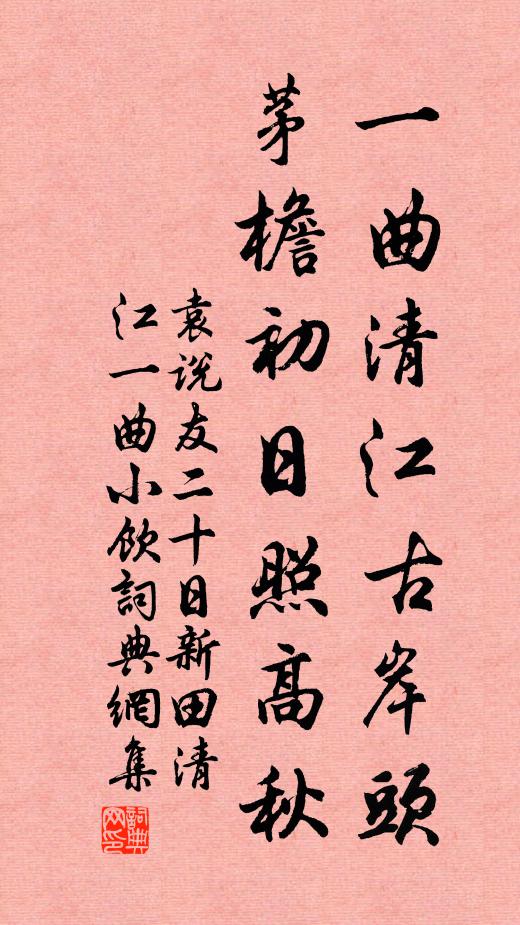 一曲清江古岸頭
茅檐初日照高秋
袁説友二十日新田清
江一曲小飲詞典網集
詞典网印